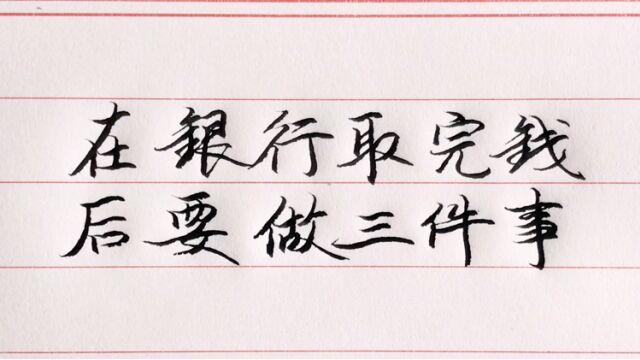 在銀行取完銭
后要做三件事